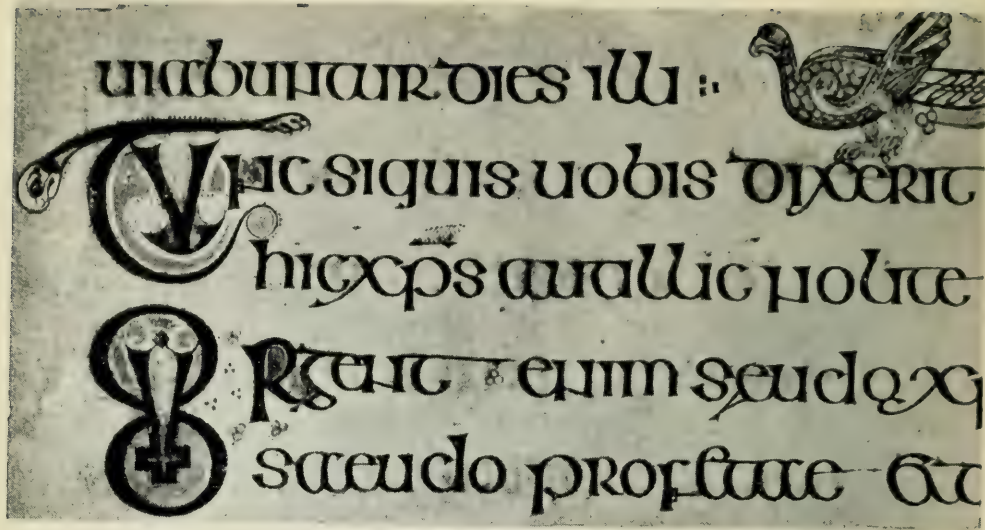 uiabuntur dies illi :·
Tunc siquis uobis dixerit
hic xps aut illic nolite
Surgent enim seudo xp
saeudo profetae et